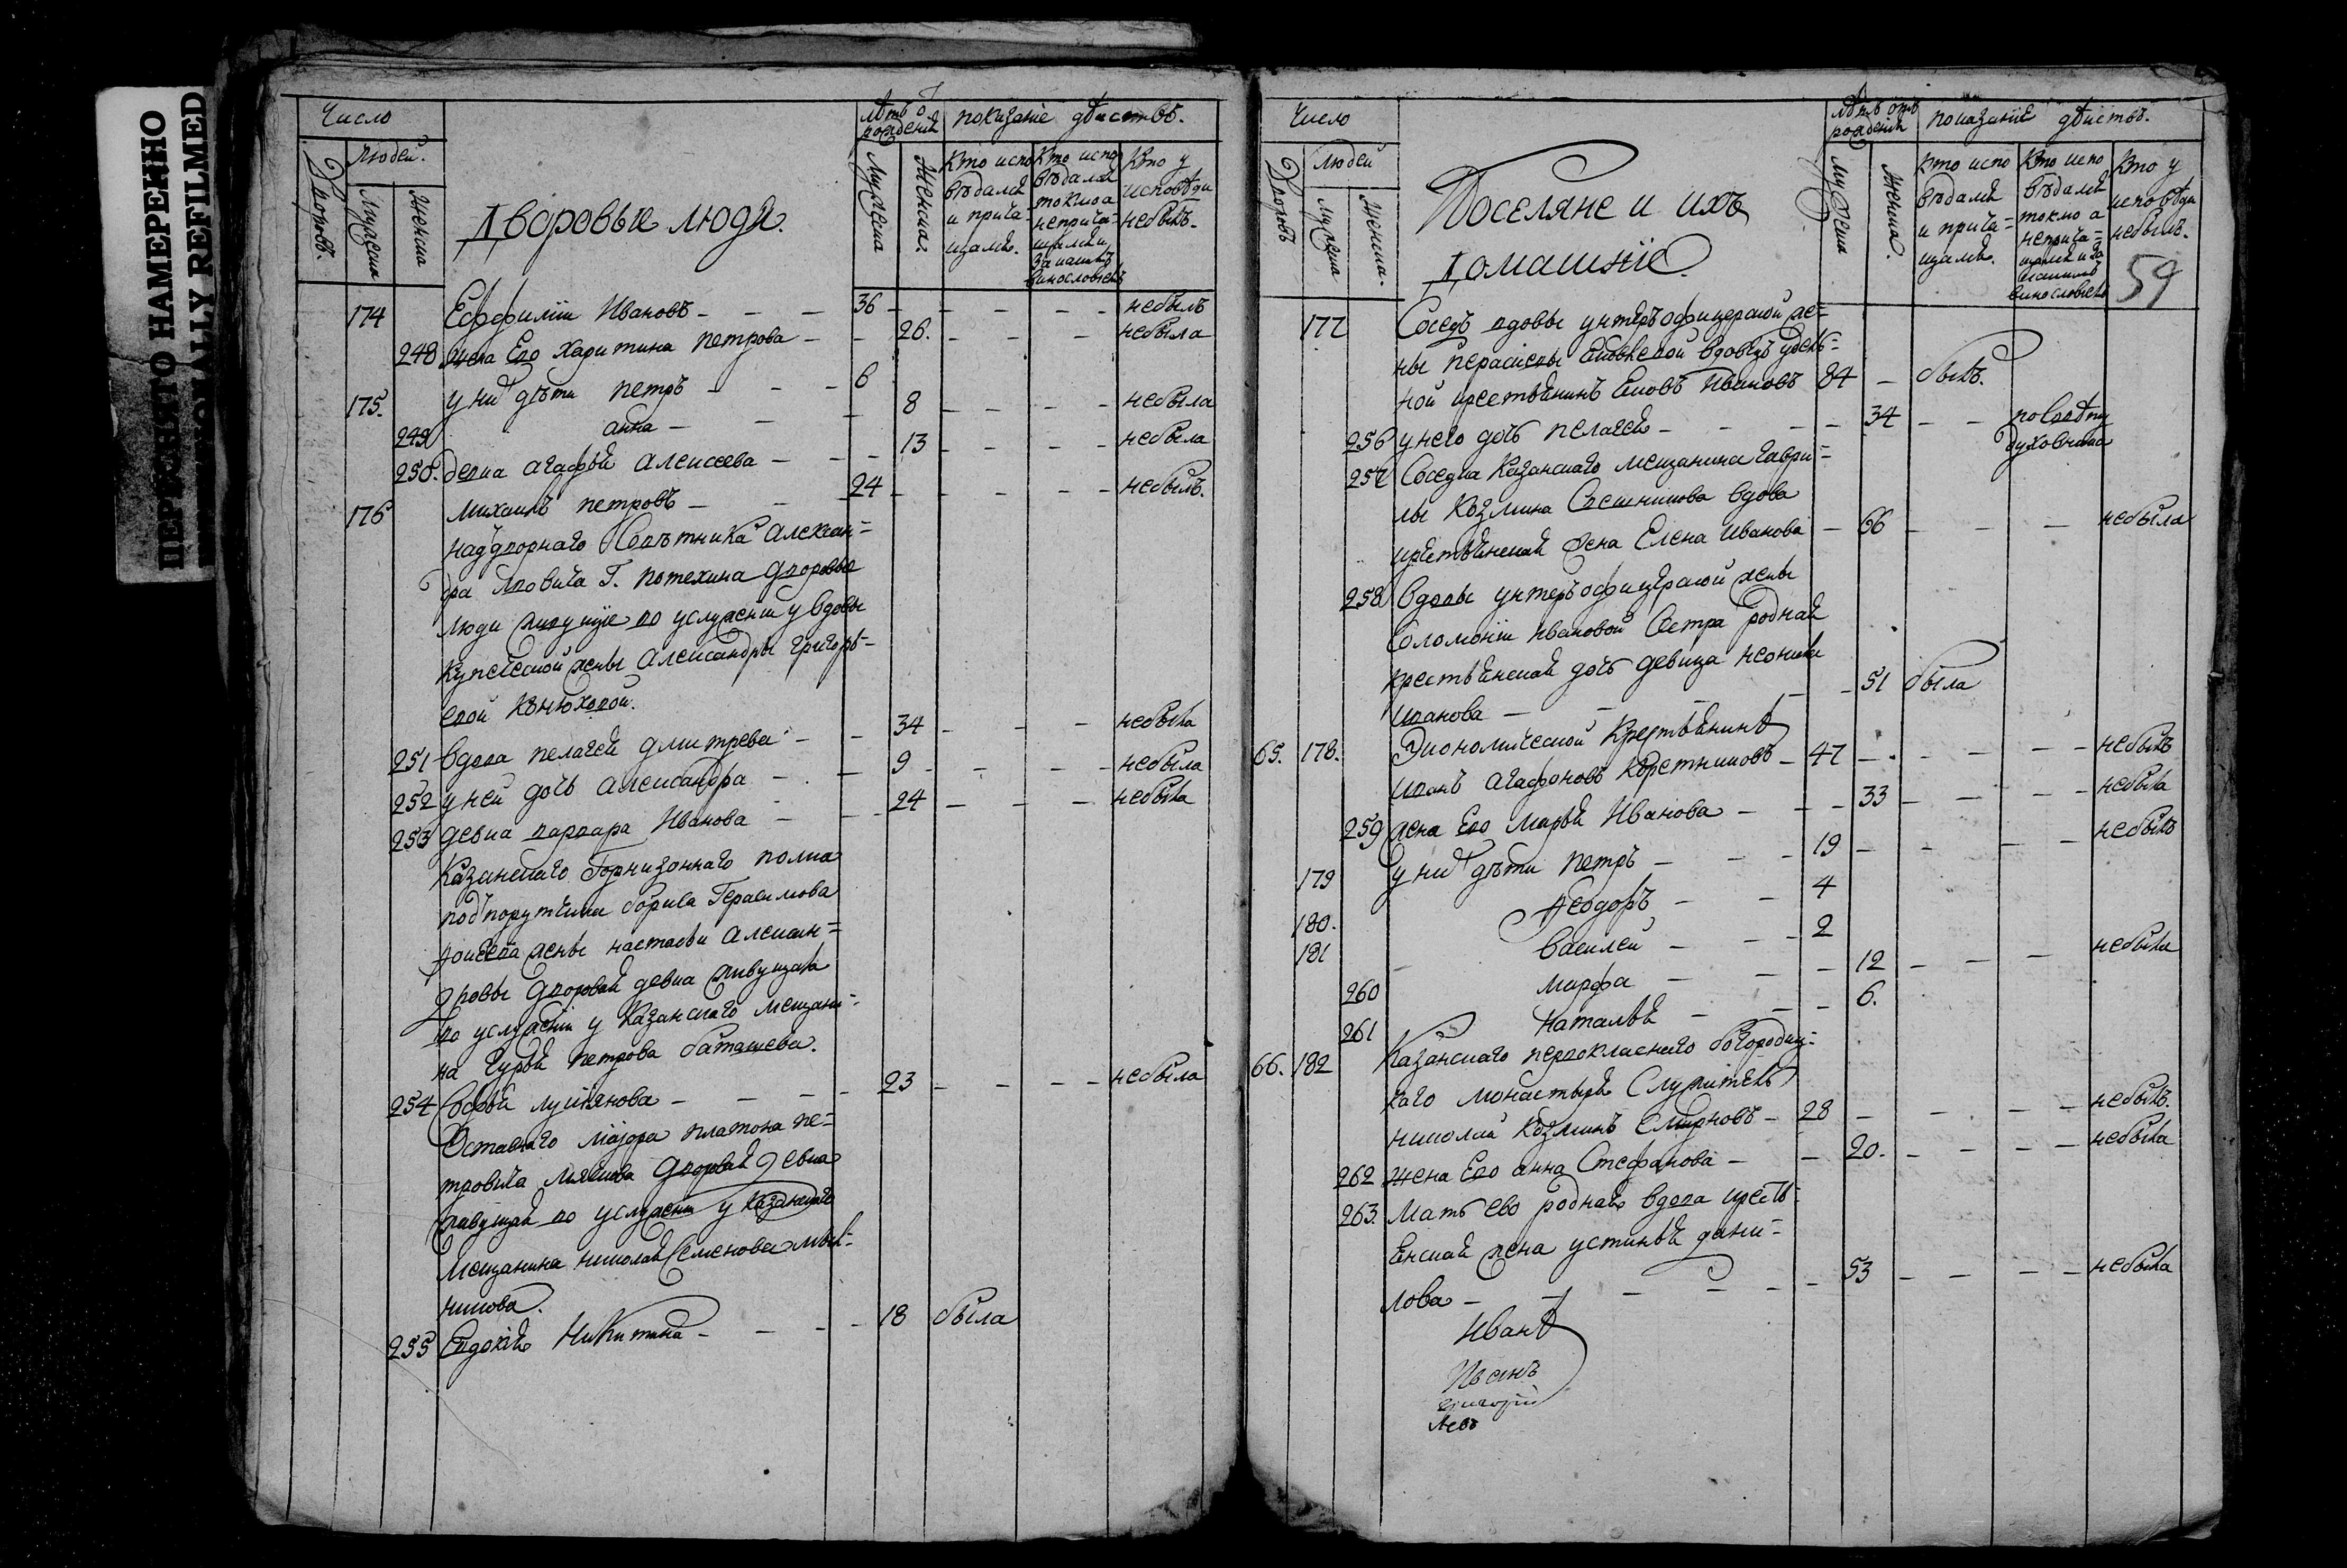 ПЕРЕСНЯТО НАМЕРЕННО
INTENTIONALLY REFILMED
Число
Дворовъ.
Людей.
Мужеска
Женска
Дворовые люди.
лѣтъ о рожденіи
Мужеска
Женска.
показаніе дѣйствъ.
Кто испо
вѣдался
и прича-
щался.
Кто испо
вѣдался
токмо а
неприча-
щался и
за какимъ
винословіемъ
Кто у
исповѣди
небылъ.
174 Евфимій Ивановъ - - - 36 - - - - небылъ
248 Жена Его Харитина петрова - - 26. - - - небыла
175. у них дѣти петръ - - - 6
249 анна - - - 8 - - - - небыла
250. девка агафья алексеева - - - 13 - - - - небыла
176 михаилъ петровъ - - 24 - - - - небылъ.
надворнаго Советника алексан=
дра г. потехина дворовые
люди живущие по услуженіи у вдовы
купеческой жены александры григорь-
евой конюховой.
251 вдова пелагея дмитрева - - 34 - - - небыла
252 у ней дочь александра - - 9 - - - - небыла
253 девка варвара Иванова - - - 24 - - - небыла
Казанскаго Горнизоннаго полка
подпорутчика бориса Герасимова
жены настасьи алексан=
дровы дворовая девка живущая
по услуженіи у Казанскаго мещани-
на Гурья петрова баташева.
254 Софья лукіянова - - - - 23 - - - - небыла
Отставнаго маіора платона пе-
тровича дворовая девка
живущая по услуженіи у Казанскаго
мещанина николая Семенова мыл-
никова.
255 Евдокія Никитина - - - - 18 была
Число
Дворовъ
Людей
Мужеска
Женска.
Поселяне и ихъ
домашніе.
лѣтъ отъ рожденіи
Мужеска
Женска.
показаніе дѣйствъ.
Кто испо
вѣдался
и прича=
щался.
Кто испо
вѣдался
токмо а
неприча=
щался и за
какимъ
винословіемъ
Кто у
исповѣди
небылъ.
59
177 Соседъ вдовы унтеръ офицерской же=
ны вдовецъ удель=
ной крестьянинъ Иановъ 84 - былъ.
256 у него дочь пелагея - - - - 34 - - по совѣту
духовника
257 Соседка Казанскаго мещанина гаври=
лы Козмина вдова
крестьянская жена Елена Иванова - 66 - - - небыла
258 вдовы унтеръ офицерской жены
Соломоніи Ивановой Сестра родная
крестьянская дочь девица
иванова - - - - - 51 была
65. 178. Экономической Крестьянинъ
иванъ агафоновъ - 47 - - - - - небылъ
259 жена Его марья Иванова - - - 33 - - - - небыла
179 у них дѣти петръ - - - 19 - - - - небылъ
180. Ѳеодоръ - - 4
181 василей - - - 2
260 марфа - - - 12 - - - небыла
261 наталья - - - 6.
66. 182 Казанскаго первокласнаго богородиц-
каго монастыря Служитель
николай козминъ Смирновъ - 28 - - - - небылъ.
262 жена Его анна Стефанова - - 20. - - - - небыла
263. Мать ево родная вдова кресть-
янская жена устинья дани=
лова - - - - - - 53 - - - - небыла
Иванъ
Иванъ
григорій
левъ